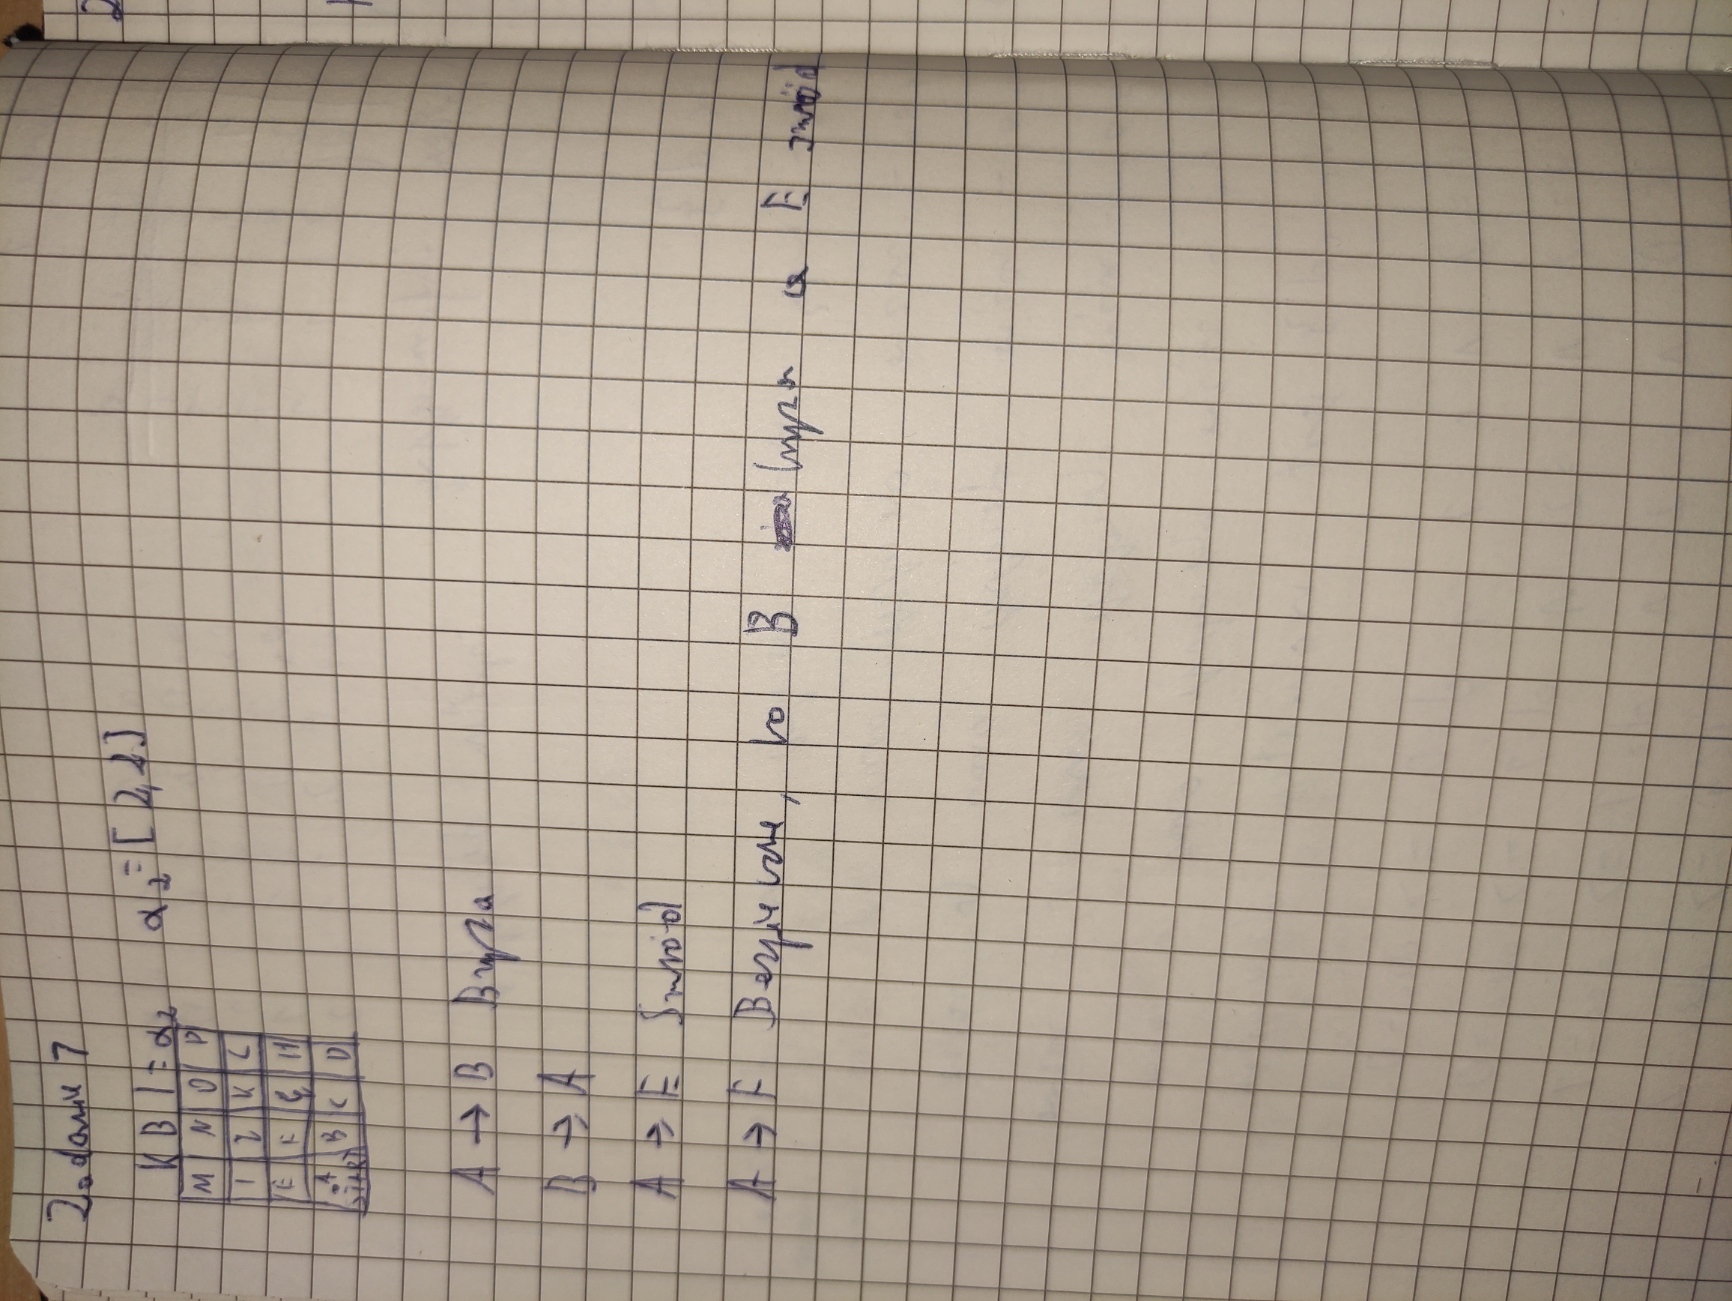 Zadanie 7
K B |= α₂ α₂ = [2,2]
M N O P
I J K L
E F G H
A START B C D
A → B Bryza
B → A
A → E Smród
A → F Bezpieczne, bo B bryza a E smród